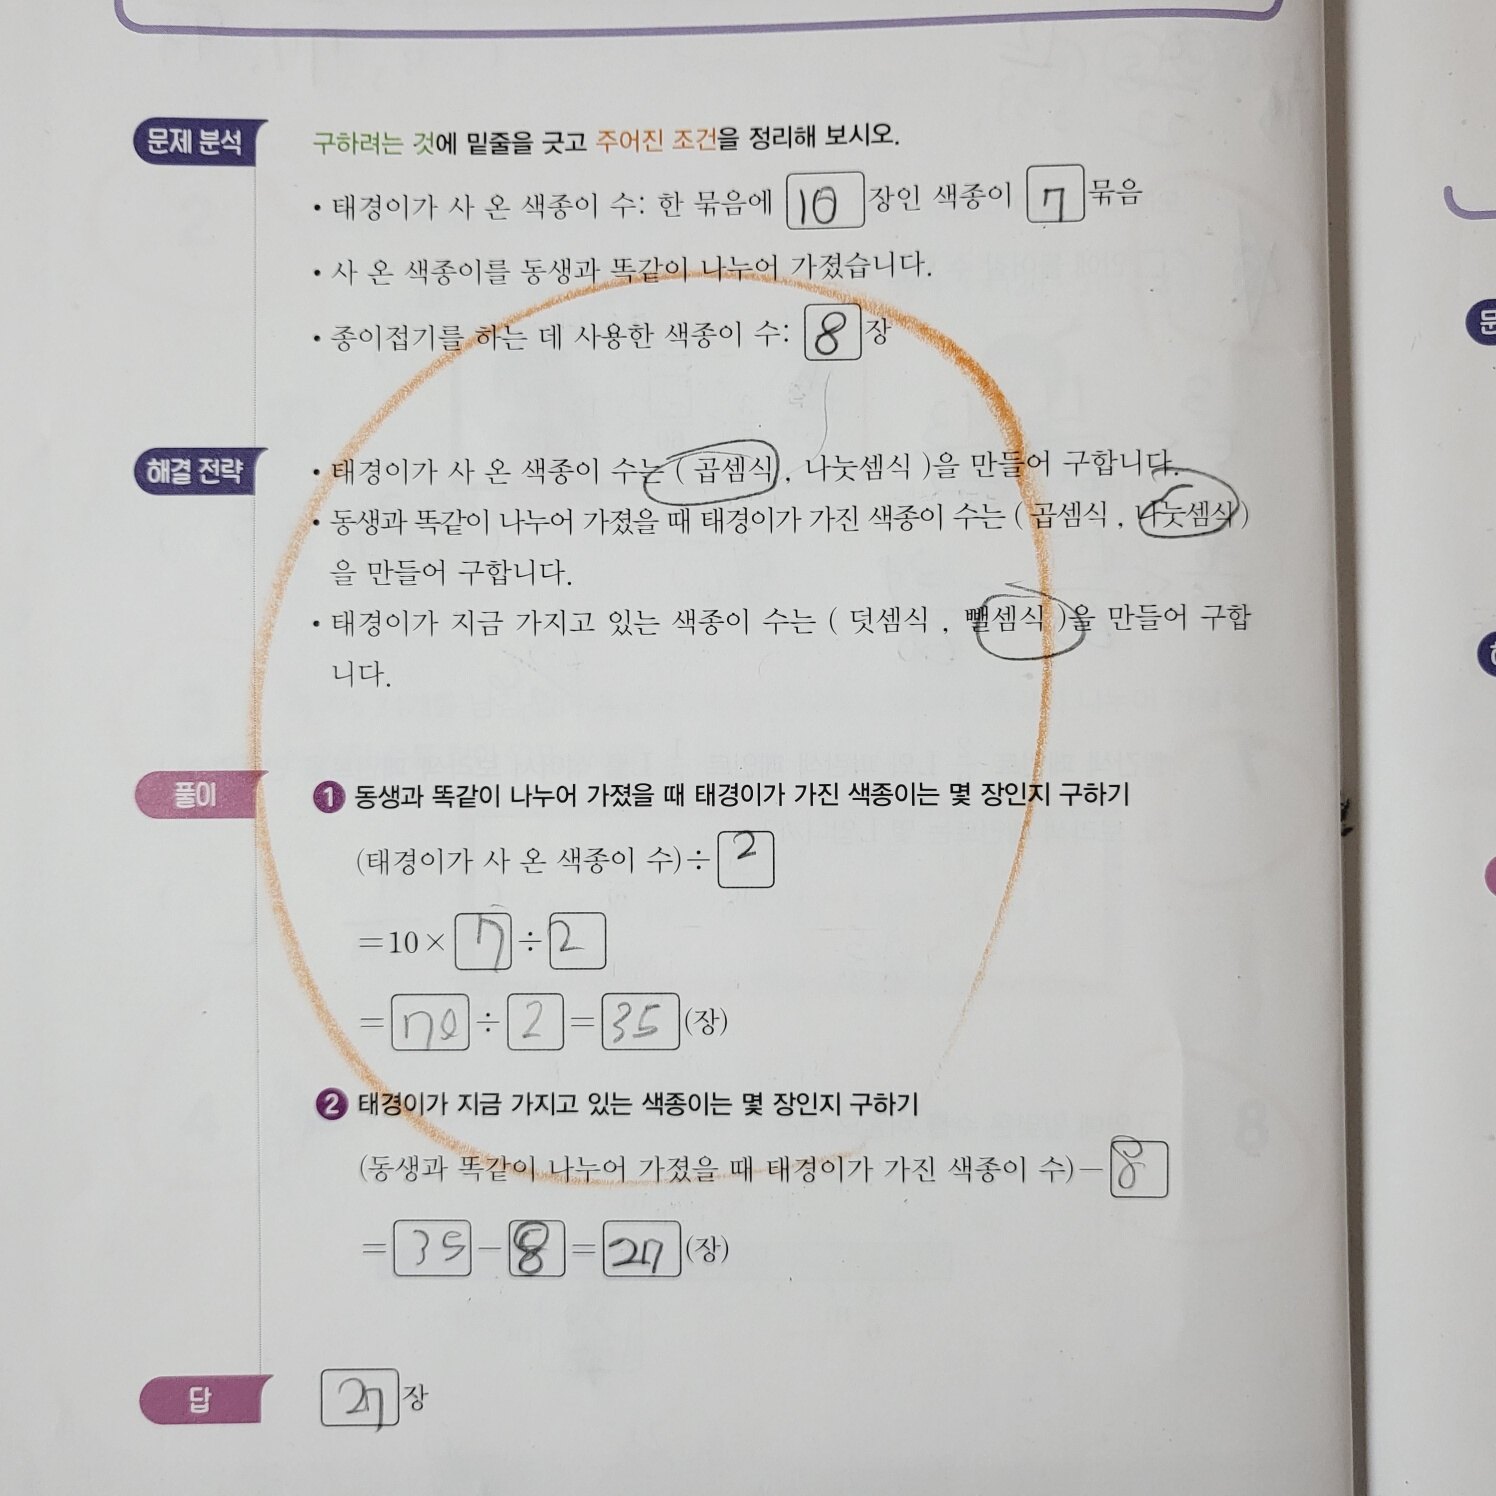 문제 분석
구하려는 것에 밑줄을 긋고 주어진 조건을 정리해 보시오.
• 태경이가 사 온 색종이 수: 한 묶음에 10 장인 색종이 7 묶음
• 사 온 색종이를 동생과 똑같이 나누어 가졌습니다.
• 종이접기를 하는 데 사용한 색종이 수: 8 장
해결 전략
• 태경이가 사 온 색종이 수는 ( 곱셈식 , 나눗셈식 )을 만들어 구합니다.
• 동생과 똑같이 나누어 가졌을 때 태경이가 가진 색종이 수는 ( 곱셈식 , 나눗셈식 )
을 만들어 구합니다.
• 태경이가 지금 가지고 있는 색종이 수는 ( 덧셈식 , 뺄셈식 )을 만들어 구합
니다.
풀이
1 동생과 똑같이 나누어 가졌을 때 태경이가 가진 색종이는 몇 장인지 구하기
(태경이가 사 온 색종이 수)÷2
=10×7÷2
=70÷2=35(장)
2 태경이가 지금 가지고 있는 색종이는 몇 장인지 구하기
(동생과 똑같이 나누어 가졌을 때 태경이가 가진 색종이 수)−8
=35−8=27(장)
답
27장